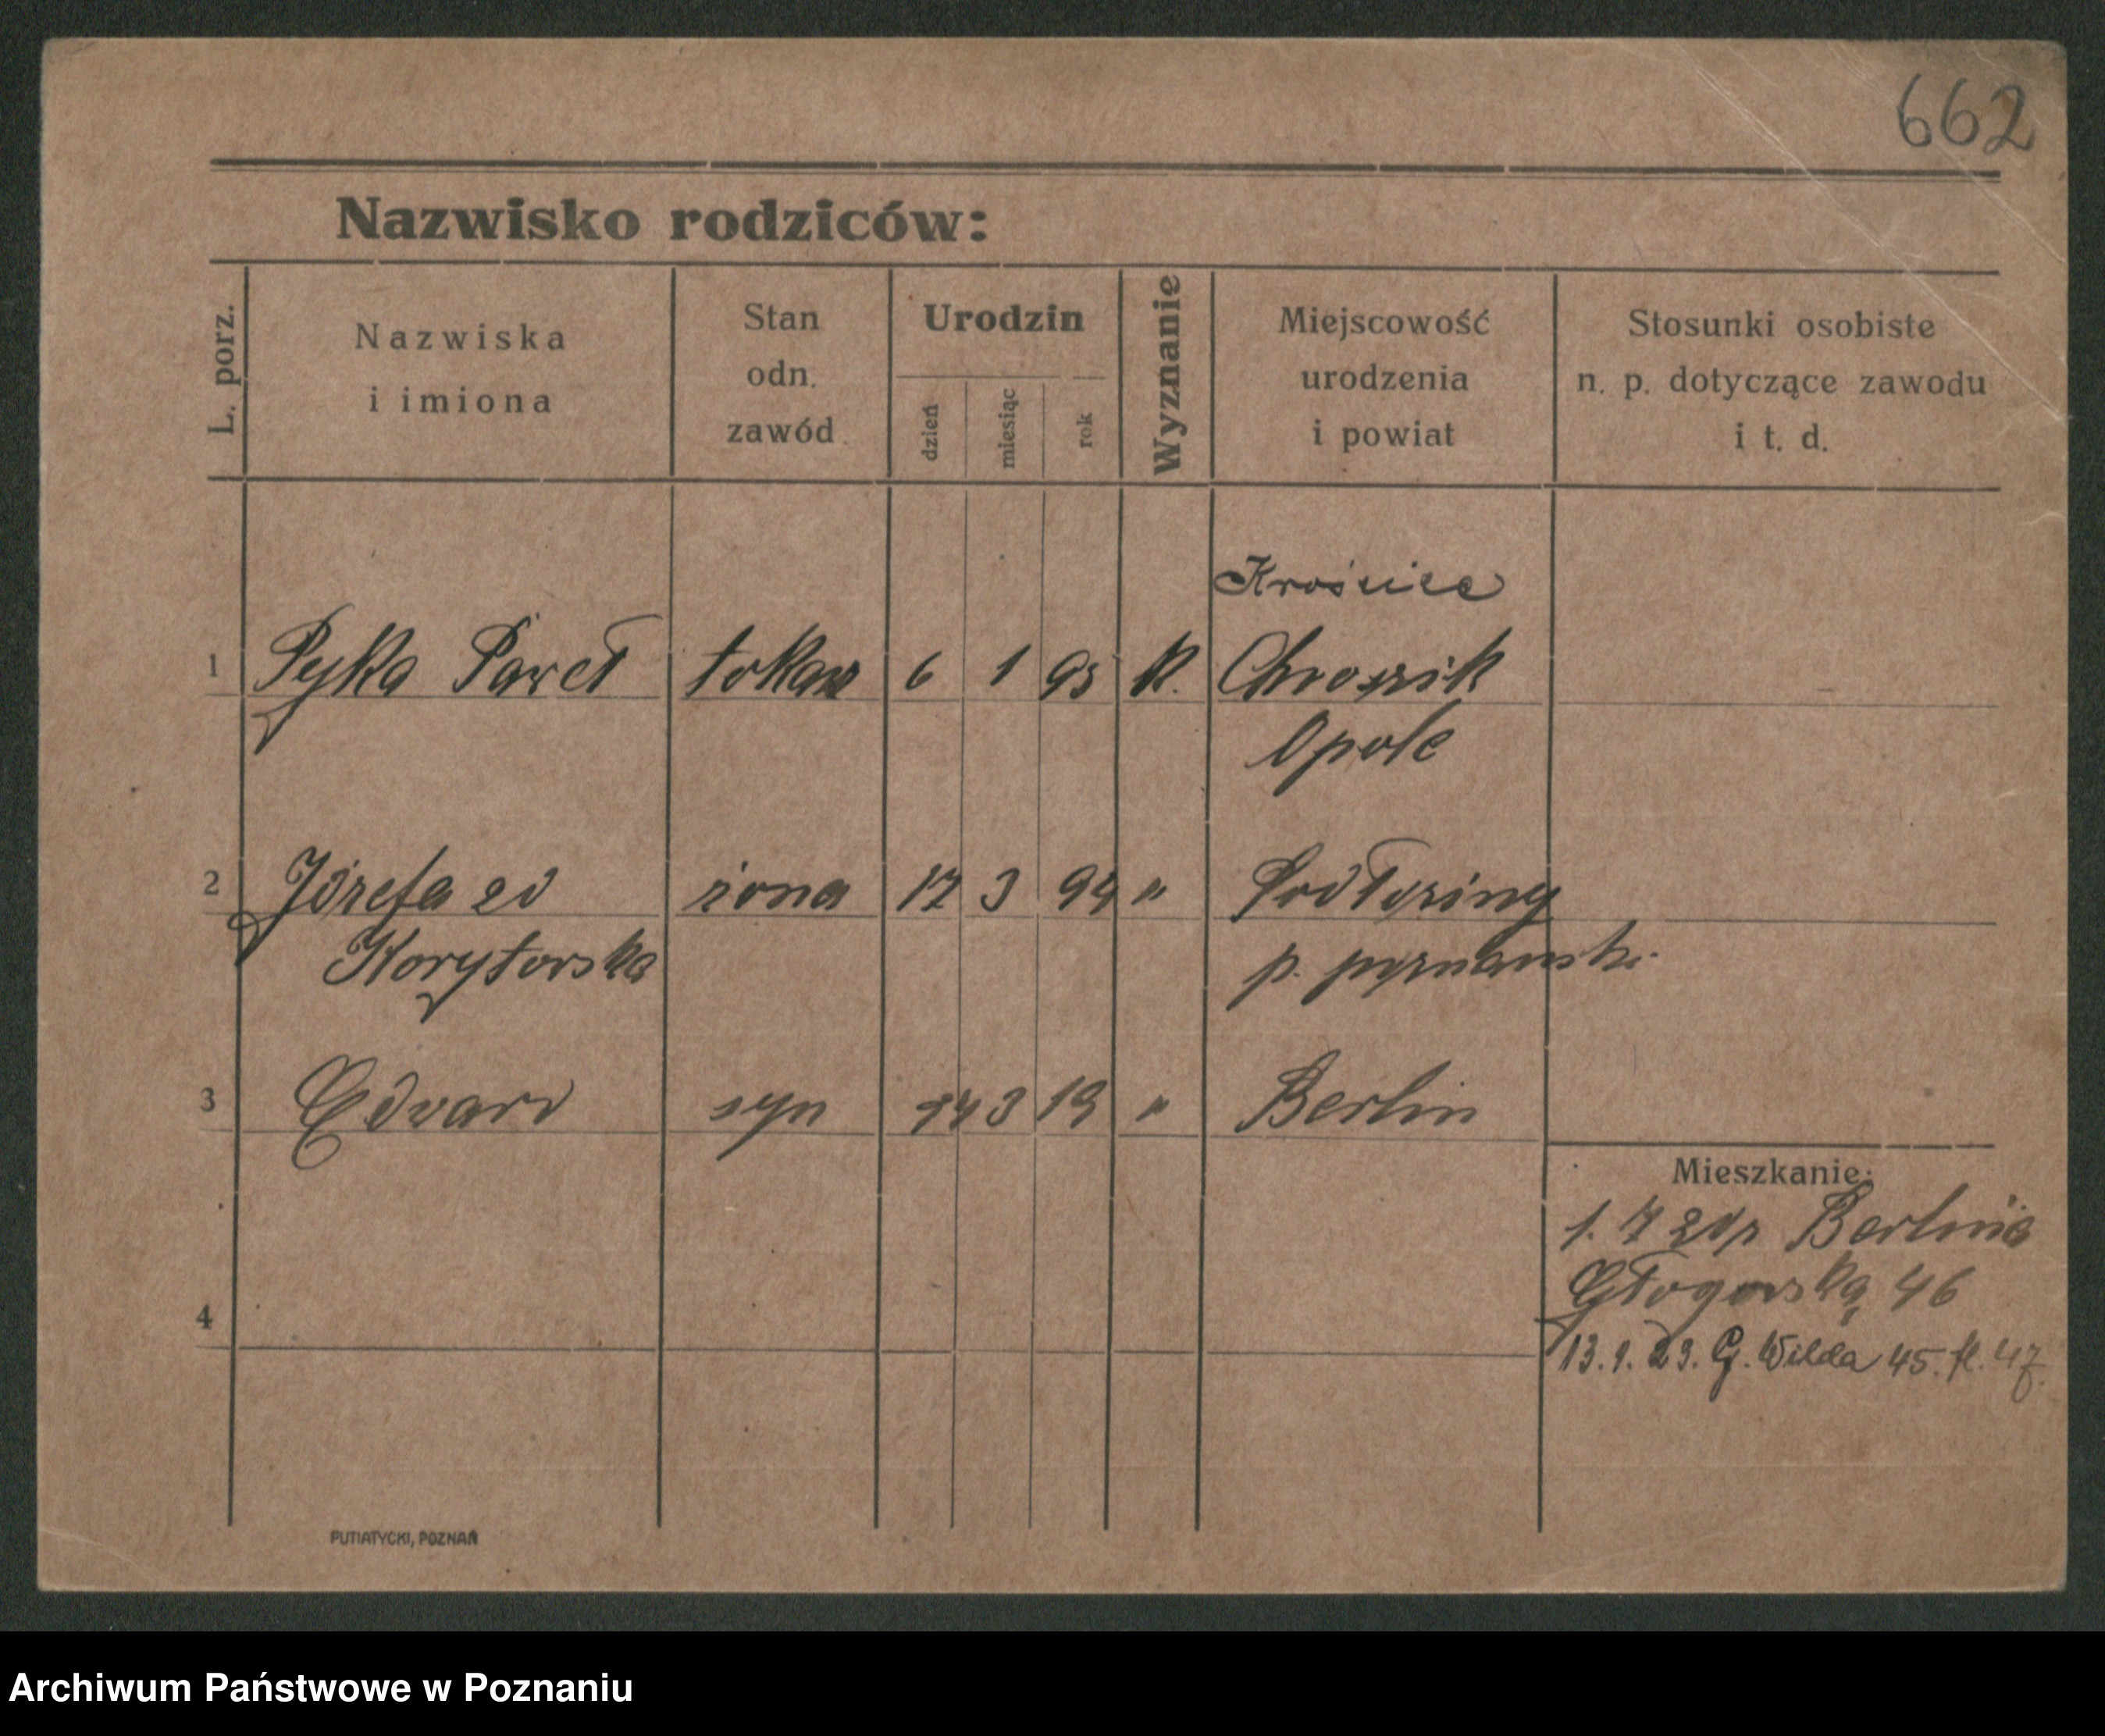 662
Nazwisko rodziców:
L. porz.
Nazwiska
i imiona
Stan
odn.
zawód
Urodzin
dzień
miesiąc
rok
Wyznanie
Miejscowość
urodzenia
i powiat
Stosunki osobiste
n. p. dotyczące zawodu
i t. d.
Krośnice
1 Pyka Paweł tokarz 6 1 93 K.
Opole
2 Józefa zd żona 17 3 94 "
Korytowska p.
3 Edward syn 3 19 " Berlin
Mieszkanie:
1. 7 Berlina
Głogowska 46
4
13.9.23. G. Wilda 45.
PUTIATYCKI, POZNAŃ
Archiwum Państwowe w Poznaniu